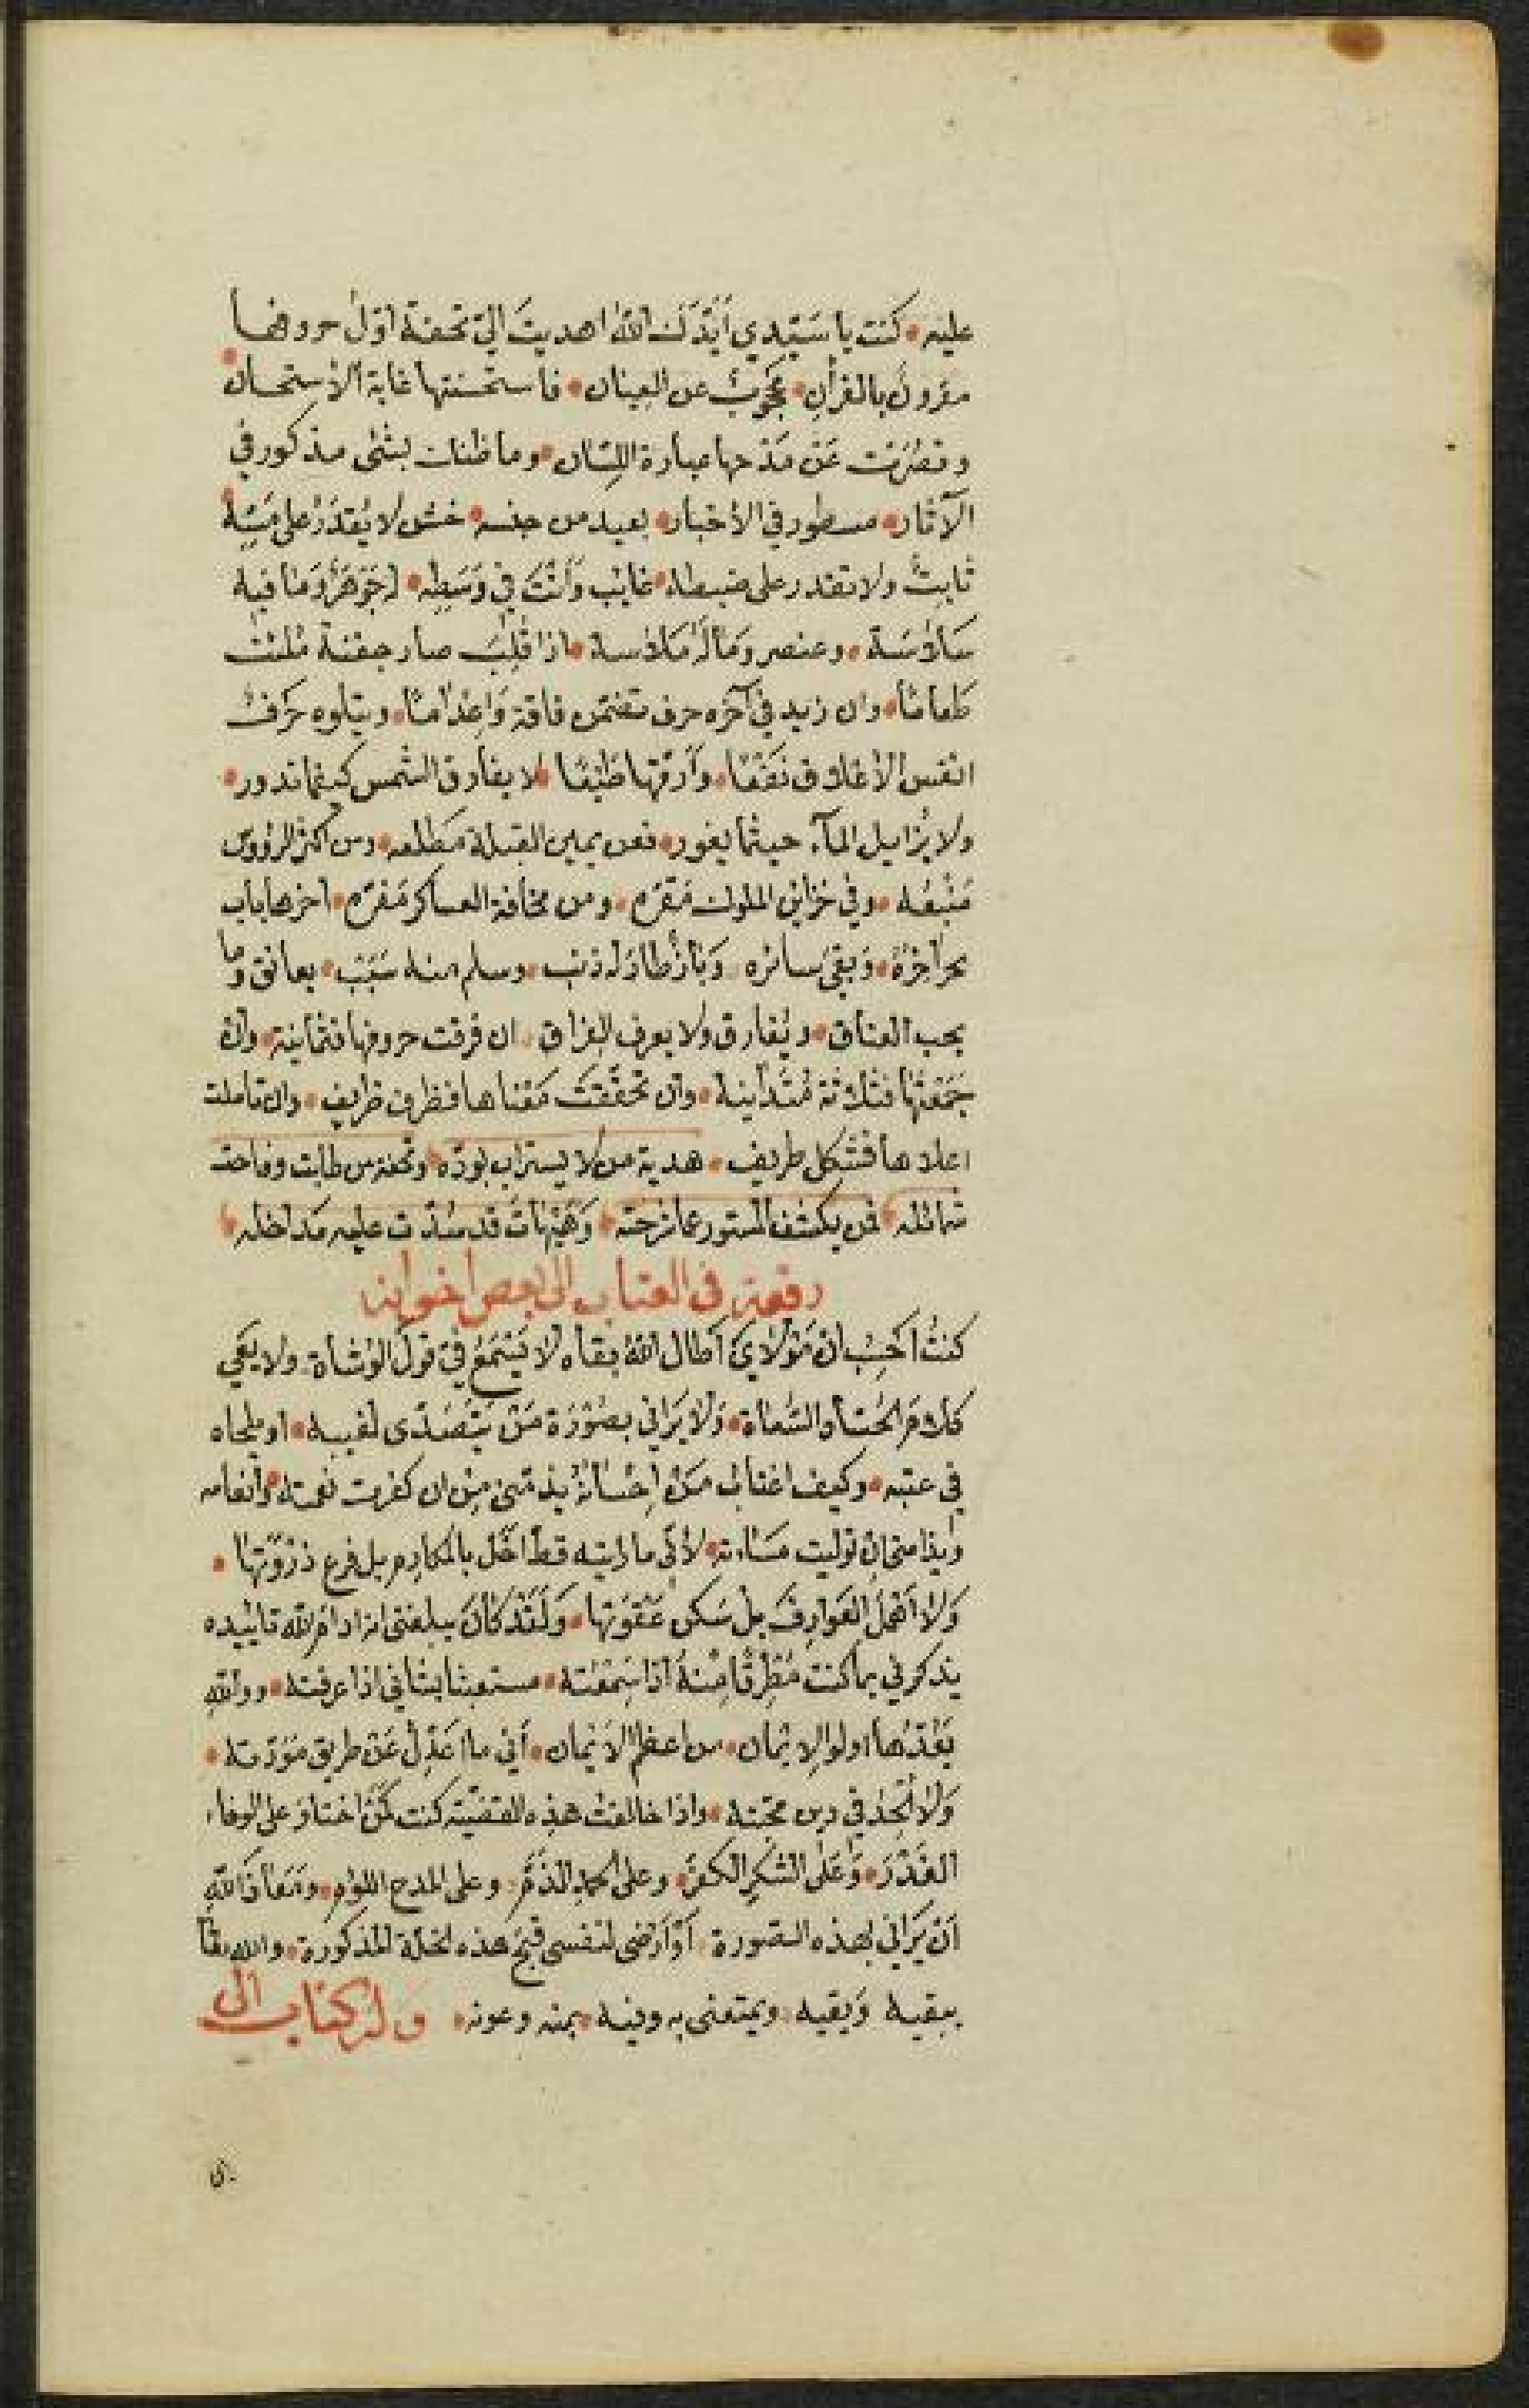 عليه كنت يا سَيّدي أيّدَكَ الله اهديتَ اليّ تحفة اوّل حروفها
مقرونٌ بالقرأن محجوبٌ عن العينان فاستحسنتها غاية الاستحسان
وقصُرَت عَن مَدحها عبارة اللسان وما ظنك بشئ مذكور في
الآثار مسطور في الأخبار بعيد من جنسه خشن لا يُقدَرُ على مَسّه
ثابتٌ ولا تقدر على ضبطه غايب وَأنْتَ في وَسَطِه جَوْهَرٌ وَمَا فيه
سَلاسَة وعنصر وَمَا لَهُ مَلاسة اذا قُلِبَ صار جفنة مُلئت
طعاماً وان زيد في آخره حرف تضمّن فاقة وَاِعْدامًا ويتلوه حَرفٌ
انفس الأعلاق نَفعًا وأرقها طَبْعًا لا يفارق الشمس كيفما تدور
ولا يُزايل المآء حيثما يغور فعن يمين القبلة مَطلعه ومن اكثر الرؤوس
مَنْبعُه وفي خزاين الملوك مَقَرّه ومن مخافة العساكر مَفرّه اخرها باب
بحر آخِرهُ وَبقىَ سائره وَبازٌ طار له ذنب وسلم منه سَبَبٌ يعانق وَما
يجب العناق ويُفارق ولا يعرف الفراق ان فرقت حروفها فثمانية وان
جَمَعْتَها فثلاثة مُتَدانية وان تحَقّقتَ مَعْناها فظرف ظريف وان تاملت
اعلاها فشكل طريف هدية من لا يستراب بودّه وتحفة من طابت وفاحت
شمائله فمن يكشف المستور عما شرحته وَهَيْهاتَ قد سُدّت عليه مَداخله
رقعة في العتاب الى بعض اخوانه
كنتُ اَحْسِبُ ان مَوْلاَيَ أطال الله بقاه لا يَسْتَمِعُ فيّ قولَ الوُشاة ولا يَعي
كلامَ الحُسّاد والسُعاة وَلا يَراني بصُوْرَة مَنْ يَتَصَدّى لغيبه او يلحاه
في عتبه وكيف اغتاب مَنْ اِحْسَانُهُ يذمّني مِن ان كفرت نعمته وأنعامه
وَيذامني ان توليت مَسَاءته لأنّي ما رايته قط اخَلّ بالمكارم بل فرع ذرْوَتها
وَلا اَهْمَلَ العَوارِفَ بل سَكن عَقْوَتها وَلَقَدْ كَانَ يبلغني انه ادامَ الله تاييده
يذكرني بما كنت مُطرقًا مِنْهُ اذا سَمِعْته مستعبثا بشاني اذا عرفته ووالله
يَعُدّهَا اولوا الايمان من اعظم الاَيْمان أني ما اَعْدِلُ عَنْ طريق مَوَدّته
وَلا اُلْحِدُ في دين محبّته واذا خالفتُ هذه القضيّة كنت كمَنْ اختار على الوفاء
الغَدْرَ وَعَلَى الشكرِ الكفرَ وعلى الحمد الذَمّ وعلى المدح اللوم وَمَعَاذ الله
اَنْ يَرَاني بهذه الصُّورة أوْ أرضى لنفسي قبحَ هذه الخلّة المذكورة والله تعالى
يبقيه وَيقيه ويمتعني به وفيه بمنه وعونه وله كتاب الى